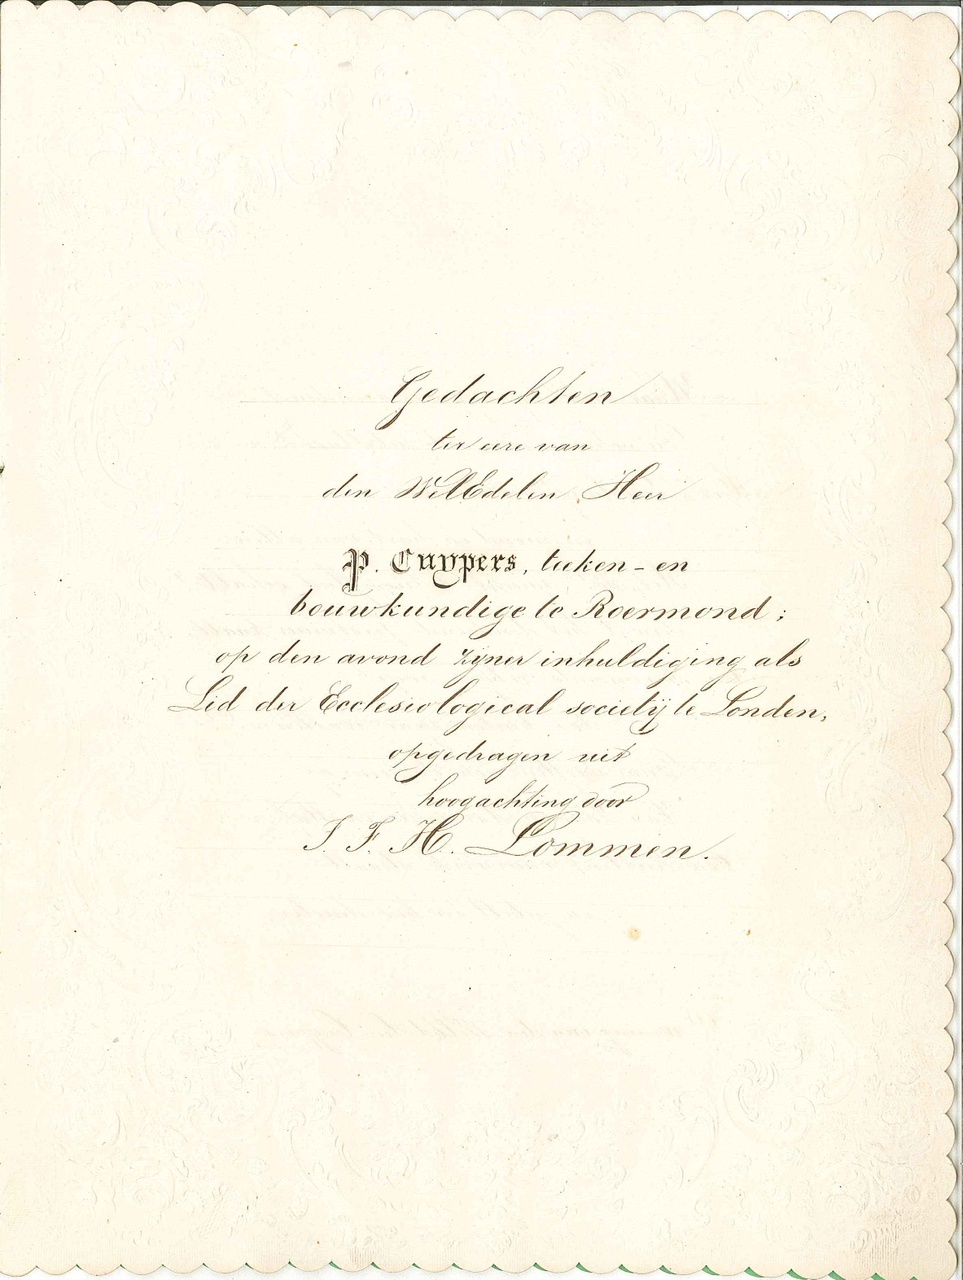 Gedachten
ter eere van
den WelEdelen Heer
P. Cuypers, teeken- en
bouwkundige te Roermond;
op den avond zijner inhuldiging als
Lid der Ecclesiological societij te Londen,
opgedragen uit
hoogachting door
J. F. H. Lommen.